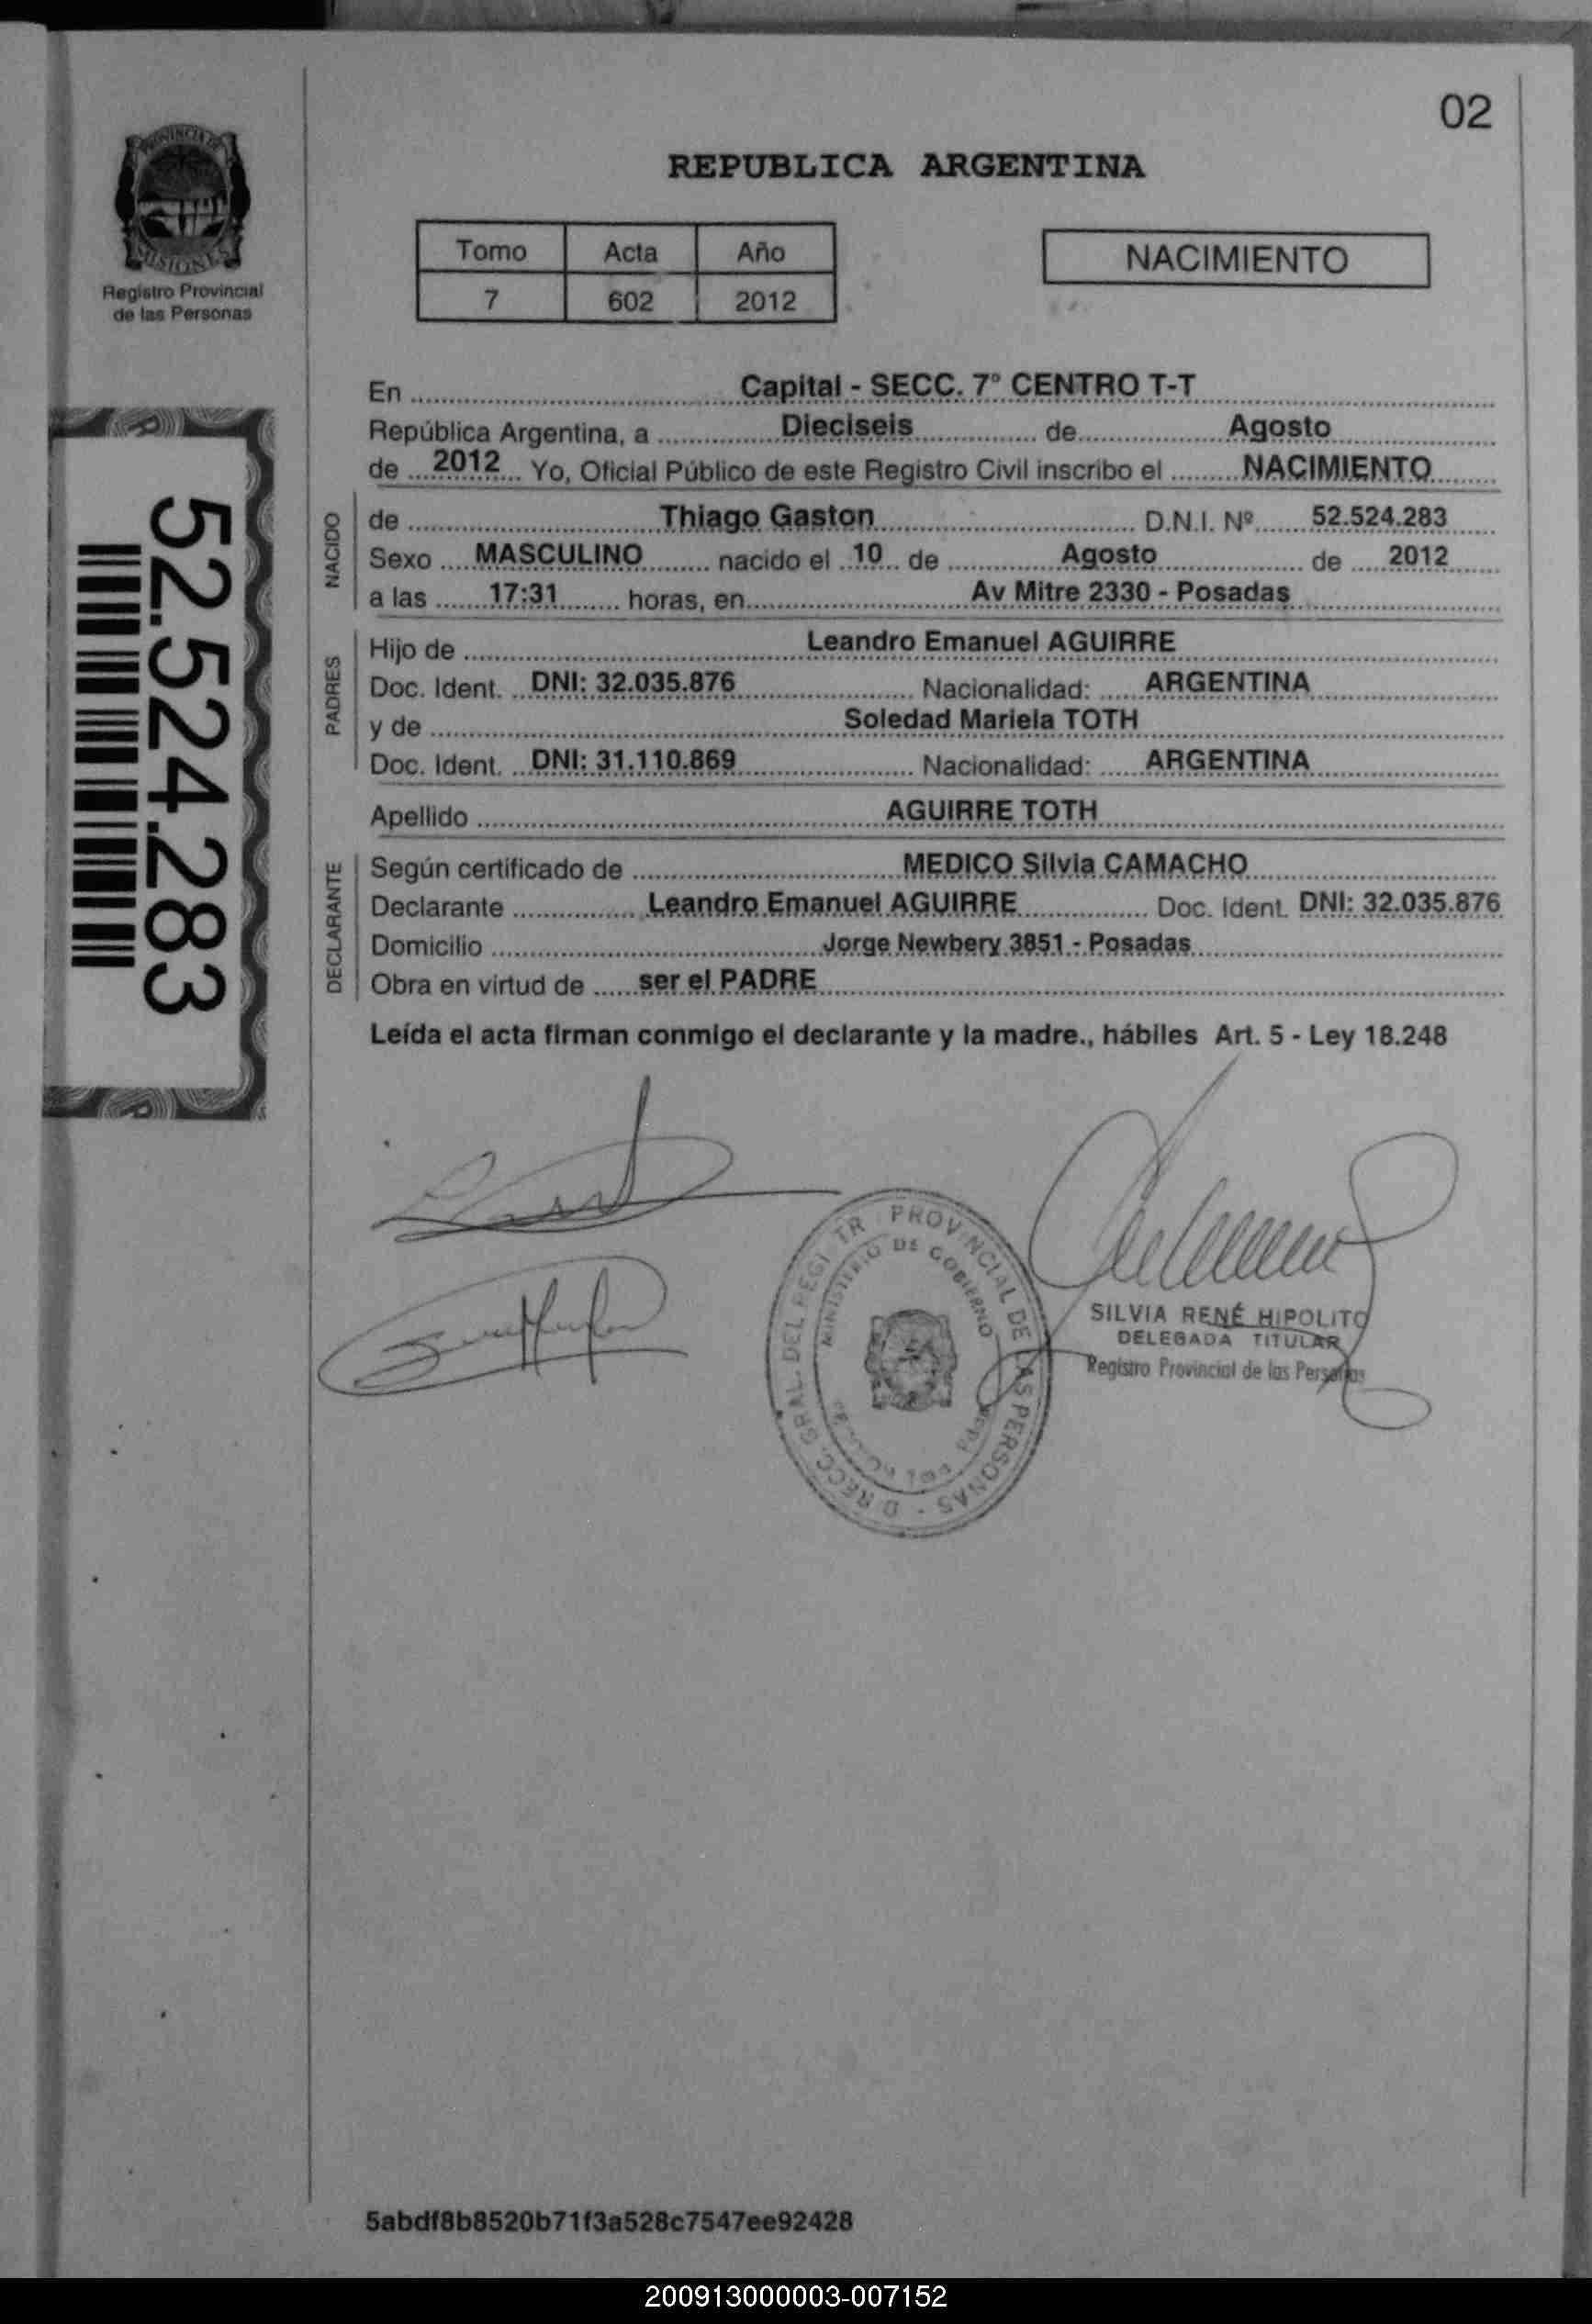 02
PROVINCIA DE
MISIONES
Registro Provincial
de las Personas
REPUBLICA ARGENTINA
Tomo Acta Año
7 602 2012
NACIMIENTO
52.524.283
En Capital - SECC. 7° CENTRO T-T
República Argentina, a Dieciseis de Agosto
de 2012 Yo, Oficial Público de este Registro Civil inscribo el NACIMIENTO
NACIDO
de Thiago Gaston D.N.I. Nº 52.524.283
Sexo MASCULINO nacido el 10 de Agosto de 2012
a las 17:31 horas, en Av Mitre 2330 - Posadas
PADRES
Hijo de Leandro Emanuel AGUIRRE
Doc. Ident. DNI: 32.035.876 Nacionalidad: ARGENTINA
y de Soledad Mariela TOTH
Doc. Ident. DNI: 31.110.869 Nacionalidad: ARGENTINA
Apellido AGUIRRE TOTH
DECLARANTE
Según certificado de MEDICO Silvia CAMACHO
Declarante Leandro Emanuel AGUIRRE Doc. Ident. DNI: 32.035.876
Domicilio Jorge Newbery 3851 - Posadas
Obra en virtud de ser el PADRE
Leída el acta firman conmigo el declarante y la madre., hábiles Art. 5 - Ley 18.248
PROVINCIAL DE LAS PERSONAS
MINISTERIO DE GOBIERNO
SILVIA RENÉ HIPOLITO
DELEGADA TITULAR
Registro Provincial de las Personas
5abdf8b8520b71f3a528c7547ee92428
200913000003-007152